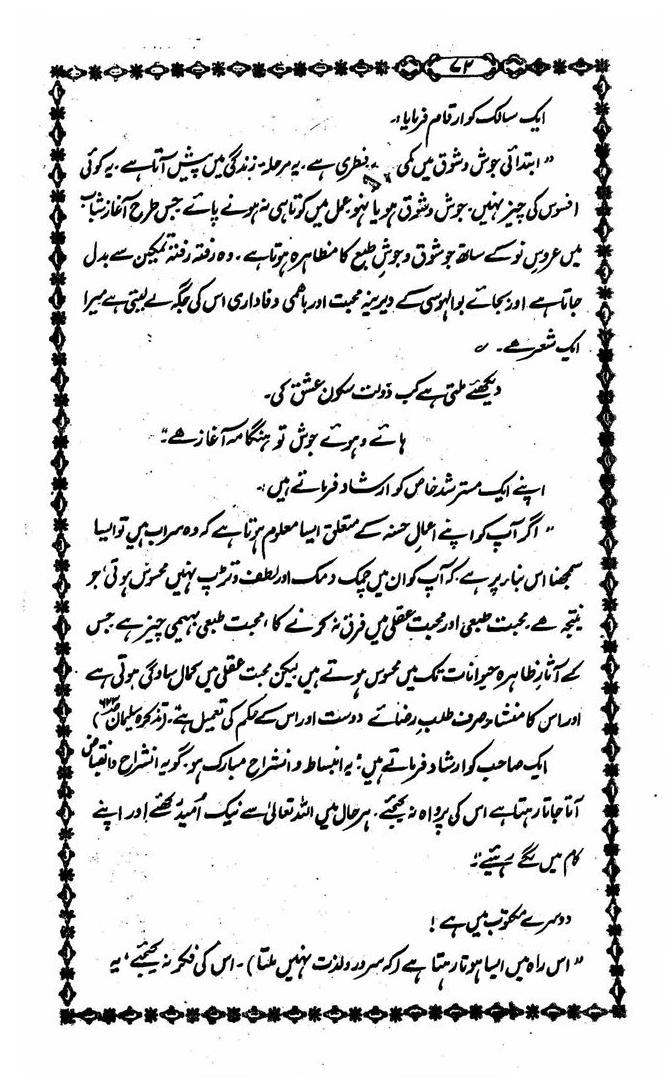 ۷۲
ایک سالک کو ارقام فرمایا:۔
" ابتدائی جوش و شوق میں کمی فطری ہے۔ یہ مرحلہ زندگی میں پیش آتا ہے۔ یہ کوئی
افسوس کی چیز نہیں۔ جوش و شوق ہو یا نہو عمل میں کوتاہی نہ ہونے پائے جس طرح آغاز شباب
میں عروس نو کے ساتھ جو شوق و جوش طبع کا مظاہرہ ہوتا ہے۔ وہ رفتہ رفتہ تمکین سے بدل
جاتا ہے اور بجائے بوالہوسی کے دیرینہ محبت اور باہمی وفاداری اس کی جگہ لے لیتی ہے میرا
ایک شعر ہے۔ ؎
دیکھئے ملتی ہے کب دولت سکون عشق کی۔
ہائے و ہوئے جوش تو ہنگامہ آغاز ہے"
اپنے ایک مسترشد خاص کو ارشاد فرماتے ہیں:۔
" اگر آپ کو اپنے اعمال حسنہ کے متعلق ایسا معلوم ہوتا ہے کہ وہ سراب ہیں تو ایسا
سمجھنا اس بنار پر ہے کہ آپ کو ان میں چمک دمک اور لطف و تڑپ نہیں محسوس ہوتی، جو
نتیجہ ہے محبت طبعی اور محبت عقلی میں فرق نہ کرنے کا، محبت طبعی بہیمی چیز ہے جس
کے آثار ظاہرہ حیوانات تک میں محسوس ہوتے ہیں لیکن محبت عقلی میں کمال سادگی ہوتی ہے
اور اس کا منشار صرف طلب رضائے دوست اور اس کے حکم کی تعمیل ہے۔ (تذکرہ سلیمان)
ایک صاحب کو ارشاد فرماتے ہیں: یہ انبساط و انشراح مبارک ہو۔ گو یہ انشراح و انقباض
آتا جاتا رہتا ہے اس کی پرواہ نہ کیجئے۔ ہر حال میں اللہ تعالیٰ سے نیک اُمید رکھئے اور اپنے
کام میں لگے رہئیے"
دوسرے مکتوب میں ہے!
" اس راہ میں ایسا ہوتا رہتا ہے (کہ سرور و لذت نہیں ملتا)۔ اس کی فکر نہ کیجئے' یہ